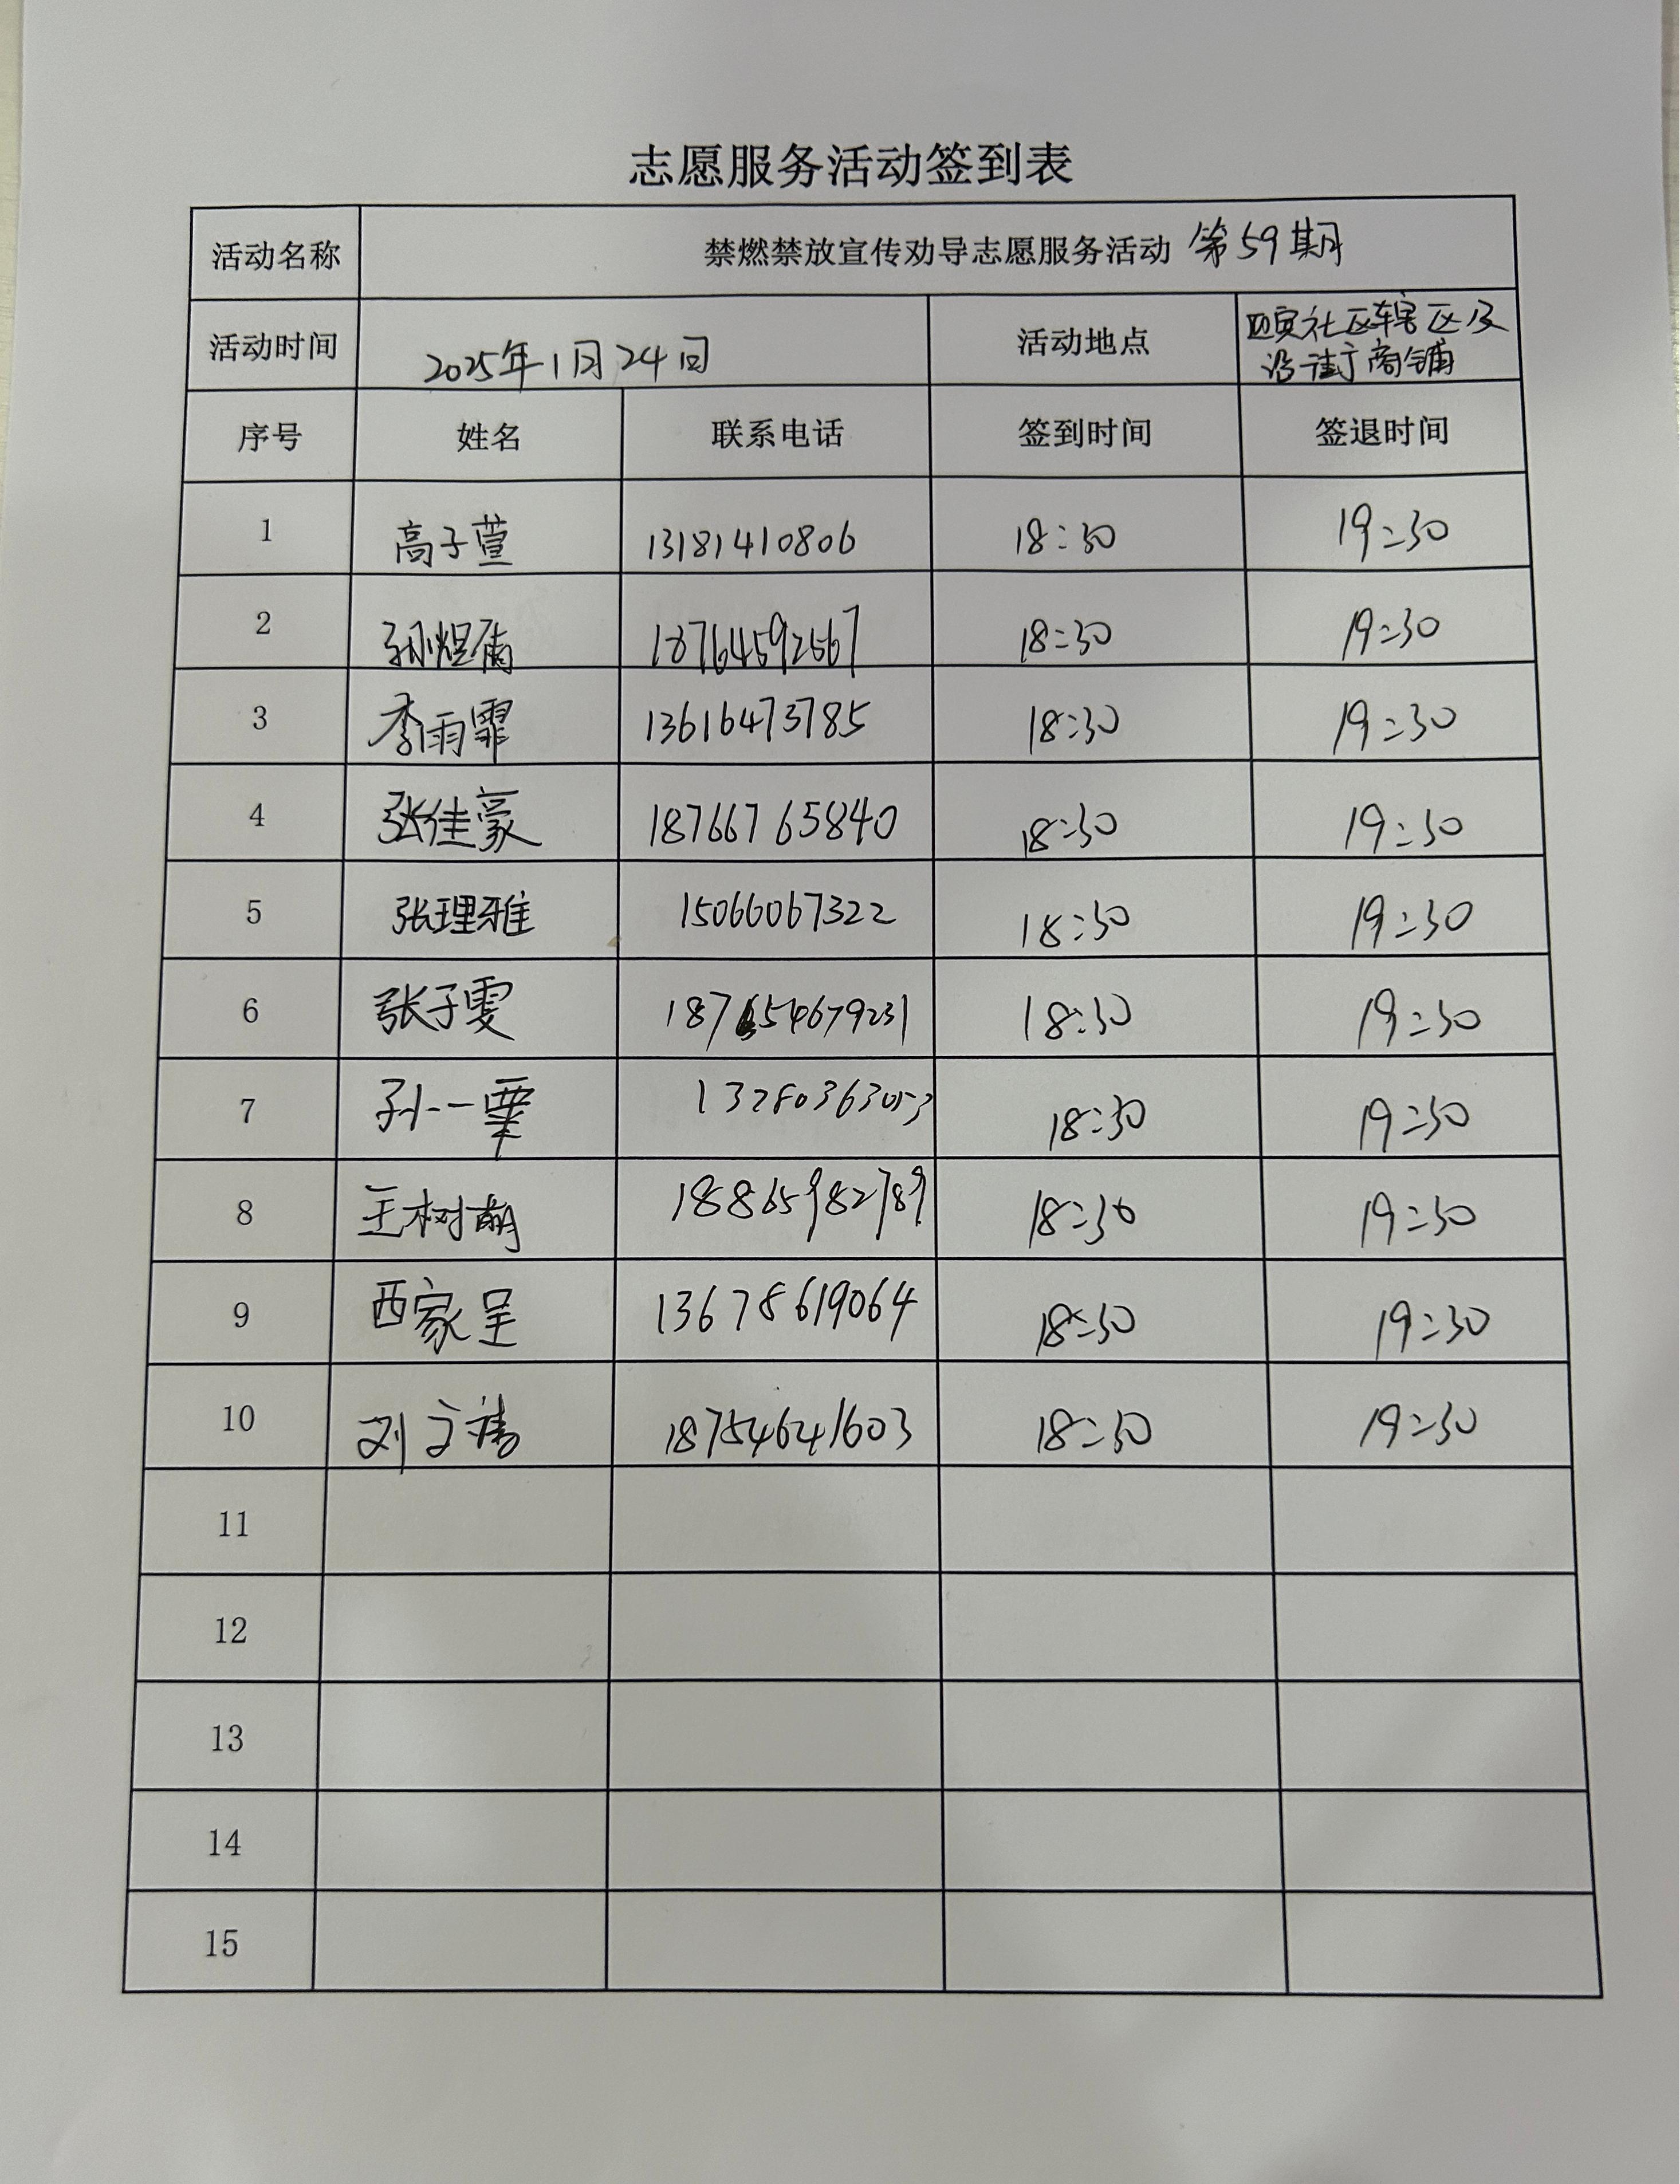 志愿服务活动签到表
活动名称 禁燃禁放宣传劝导志愿服务活动 第59期
活动时间 2025年1月24日 活动地点 社区辖区及
沿街商铺
序号 姓名 联系电话 签到时间 签退时间
1 高子萱 13181410806 18:30 19:30
2 孙煜 18764592567 18:30 19:30
3 李雨霏 13616473785 18:30 19:30
4 张佳豪 18766765840 18:30 19:30
5 张理雅 15066067322 18:30 19:30
6 张子雯 18:30 19:30
7 孙一粟 18:30 19:30
8 王树萌 18865982789 18:30 19:30
9 西家呈 13678619064 18:30 19:30
10 刘文 18754641603 18:30 19:30
11
12
13
14
15